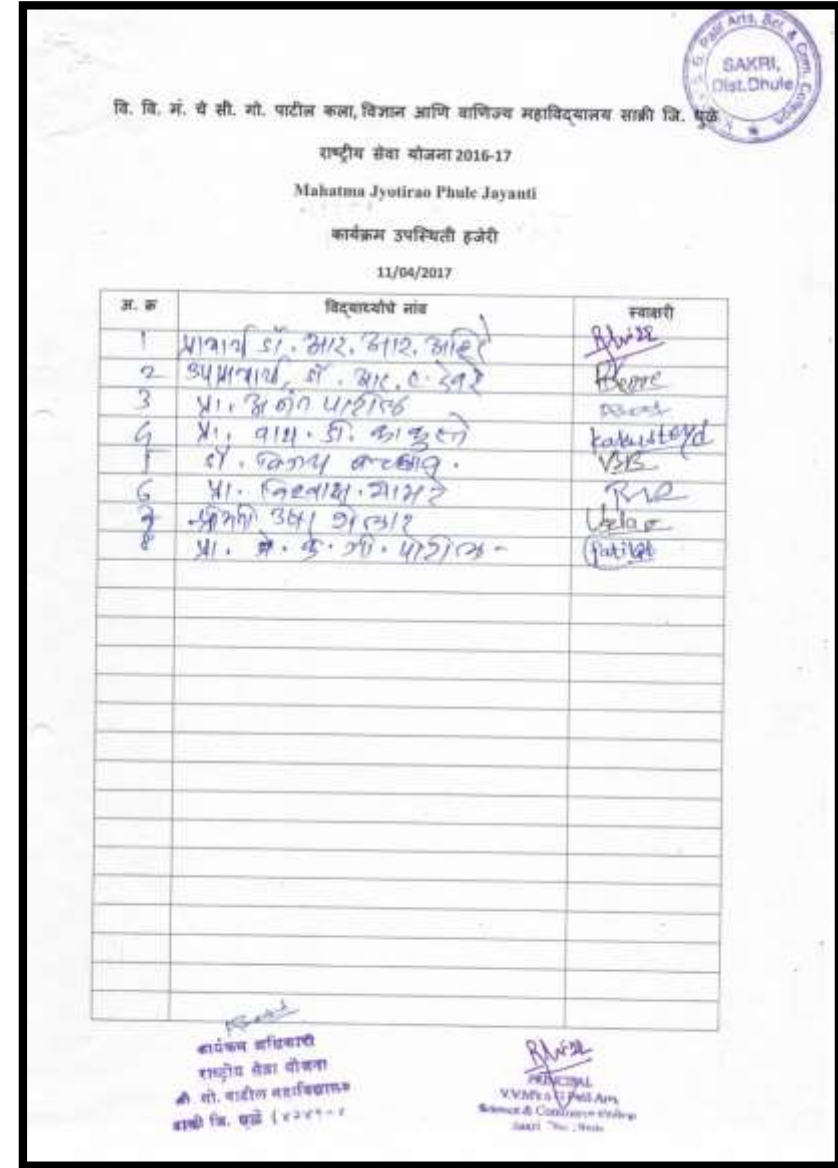 SAKRI,
Dist.Dhule
वि. वि. मं. चे सी. गो. पाटील कला, विज्ञान आणि वाणिज्य महाविद्यालय साक्री जि. धुळे
राष्ट्रीय सेवा योजना 2016-17
Mahatma Jyotirao Phule Jayanti
कार्यक्रम उपस्थिती हजेरी
11/04/2017
अ. क्र विद्यार्थ्यांचे नांव स्वाक्षरी
१ प्राचार्य डॉ. आर. आर. अहिरे
२ उपप्राचार्य, डॉ. आर. ए. देवरे
३ प्रा. अनंत पाटील
४ प्रा. वाय. डी. काकुस्ते kakusteyd
५ डॉ. विजय
६ प्रा.
७ श्रीमती उषा शेलार
८ प्रा. प्रे. क. सी. पाटील Patil
कार्यक्रम अधिकारी
राष्ट्रीय सेवा योजना
सी. गो. पाटील महाविद्यालय
साक्री जि. धुळे
PRINCIPAL
V.V.M's S.G. Patil Arts,
Science & Commerce College
Sakri Dist. Dhule